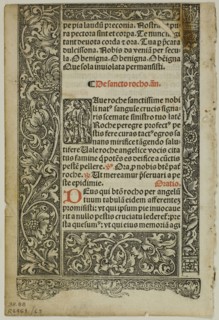 pe pia laudū preconia. Nostra ut pu
ra pectora sint et corpa. Te nunc
tant deuota corda et ora. Tua p̱ p̄cata
dulcisona. Nobis da veniā per secu
la. O benigna. O benigna. O benigna
Que sola inuiolata permansisti.
De sancto rocho. Añ.
Aue roche sanctissime nobi
li nat⁹ sanguīe crucis signa
ris scemate sinistro tuo late
Roche peregre profect⁹ pe
stis fere curas tact⁹ egros sa
nans mirifice tāgendo salu
tifere Uale roche angelice vocis cita
tus famine q̄ potēs es deifice a cūctis
pestē pellere. Ora p nobis btē pať
roche. Ut mereamur pseruari a pe
ste epidimie. Oratio.
Deus qui btō rocho per angelū
tuum tabulā eidem afferentē
promisisti: vt qui ipsum pie inuocaue
rit a nullo pestis cruciatu lederef: pre
sta quesum⁹: vt qui eius memoriā agi